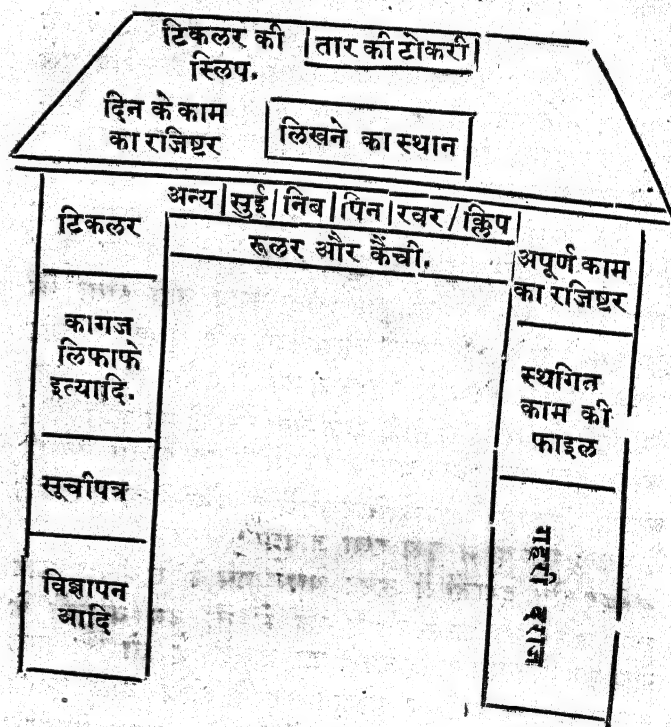 टिकलर की
स्लिप.
तार की टोकरी
दिन के काम
का रजिष्टर
लिखने का स्थान
अन्य|सुई|निब|पिन|रवर/क्लिप
रूलर और कैंची.
टिकलर
कागज
लिफाफे
इत्यादि.
सूचीपत्र
विज्ञापन
आदि
अपूर्ण काम
का रजिष्टर
स्थगित
काम की
फाइल
गहरी दराज